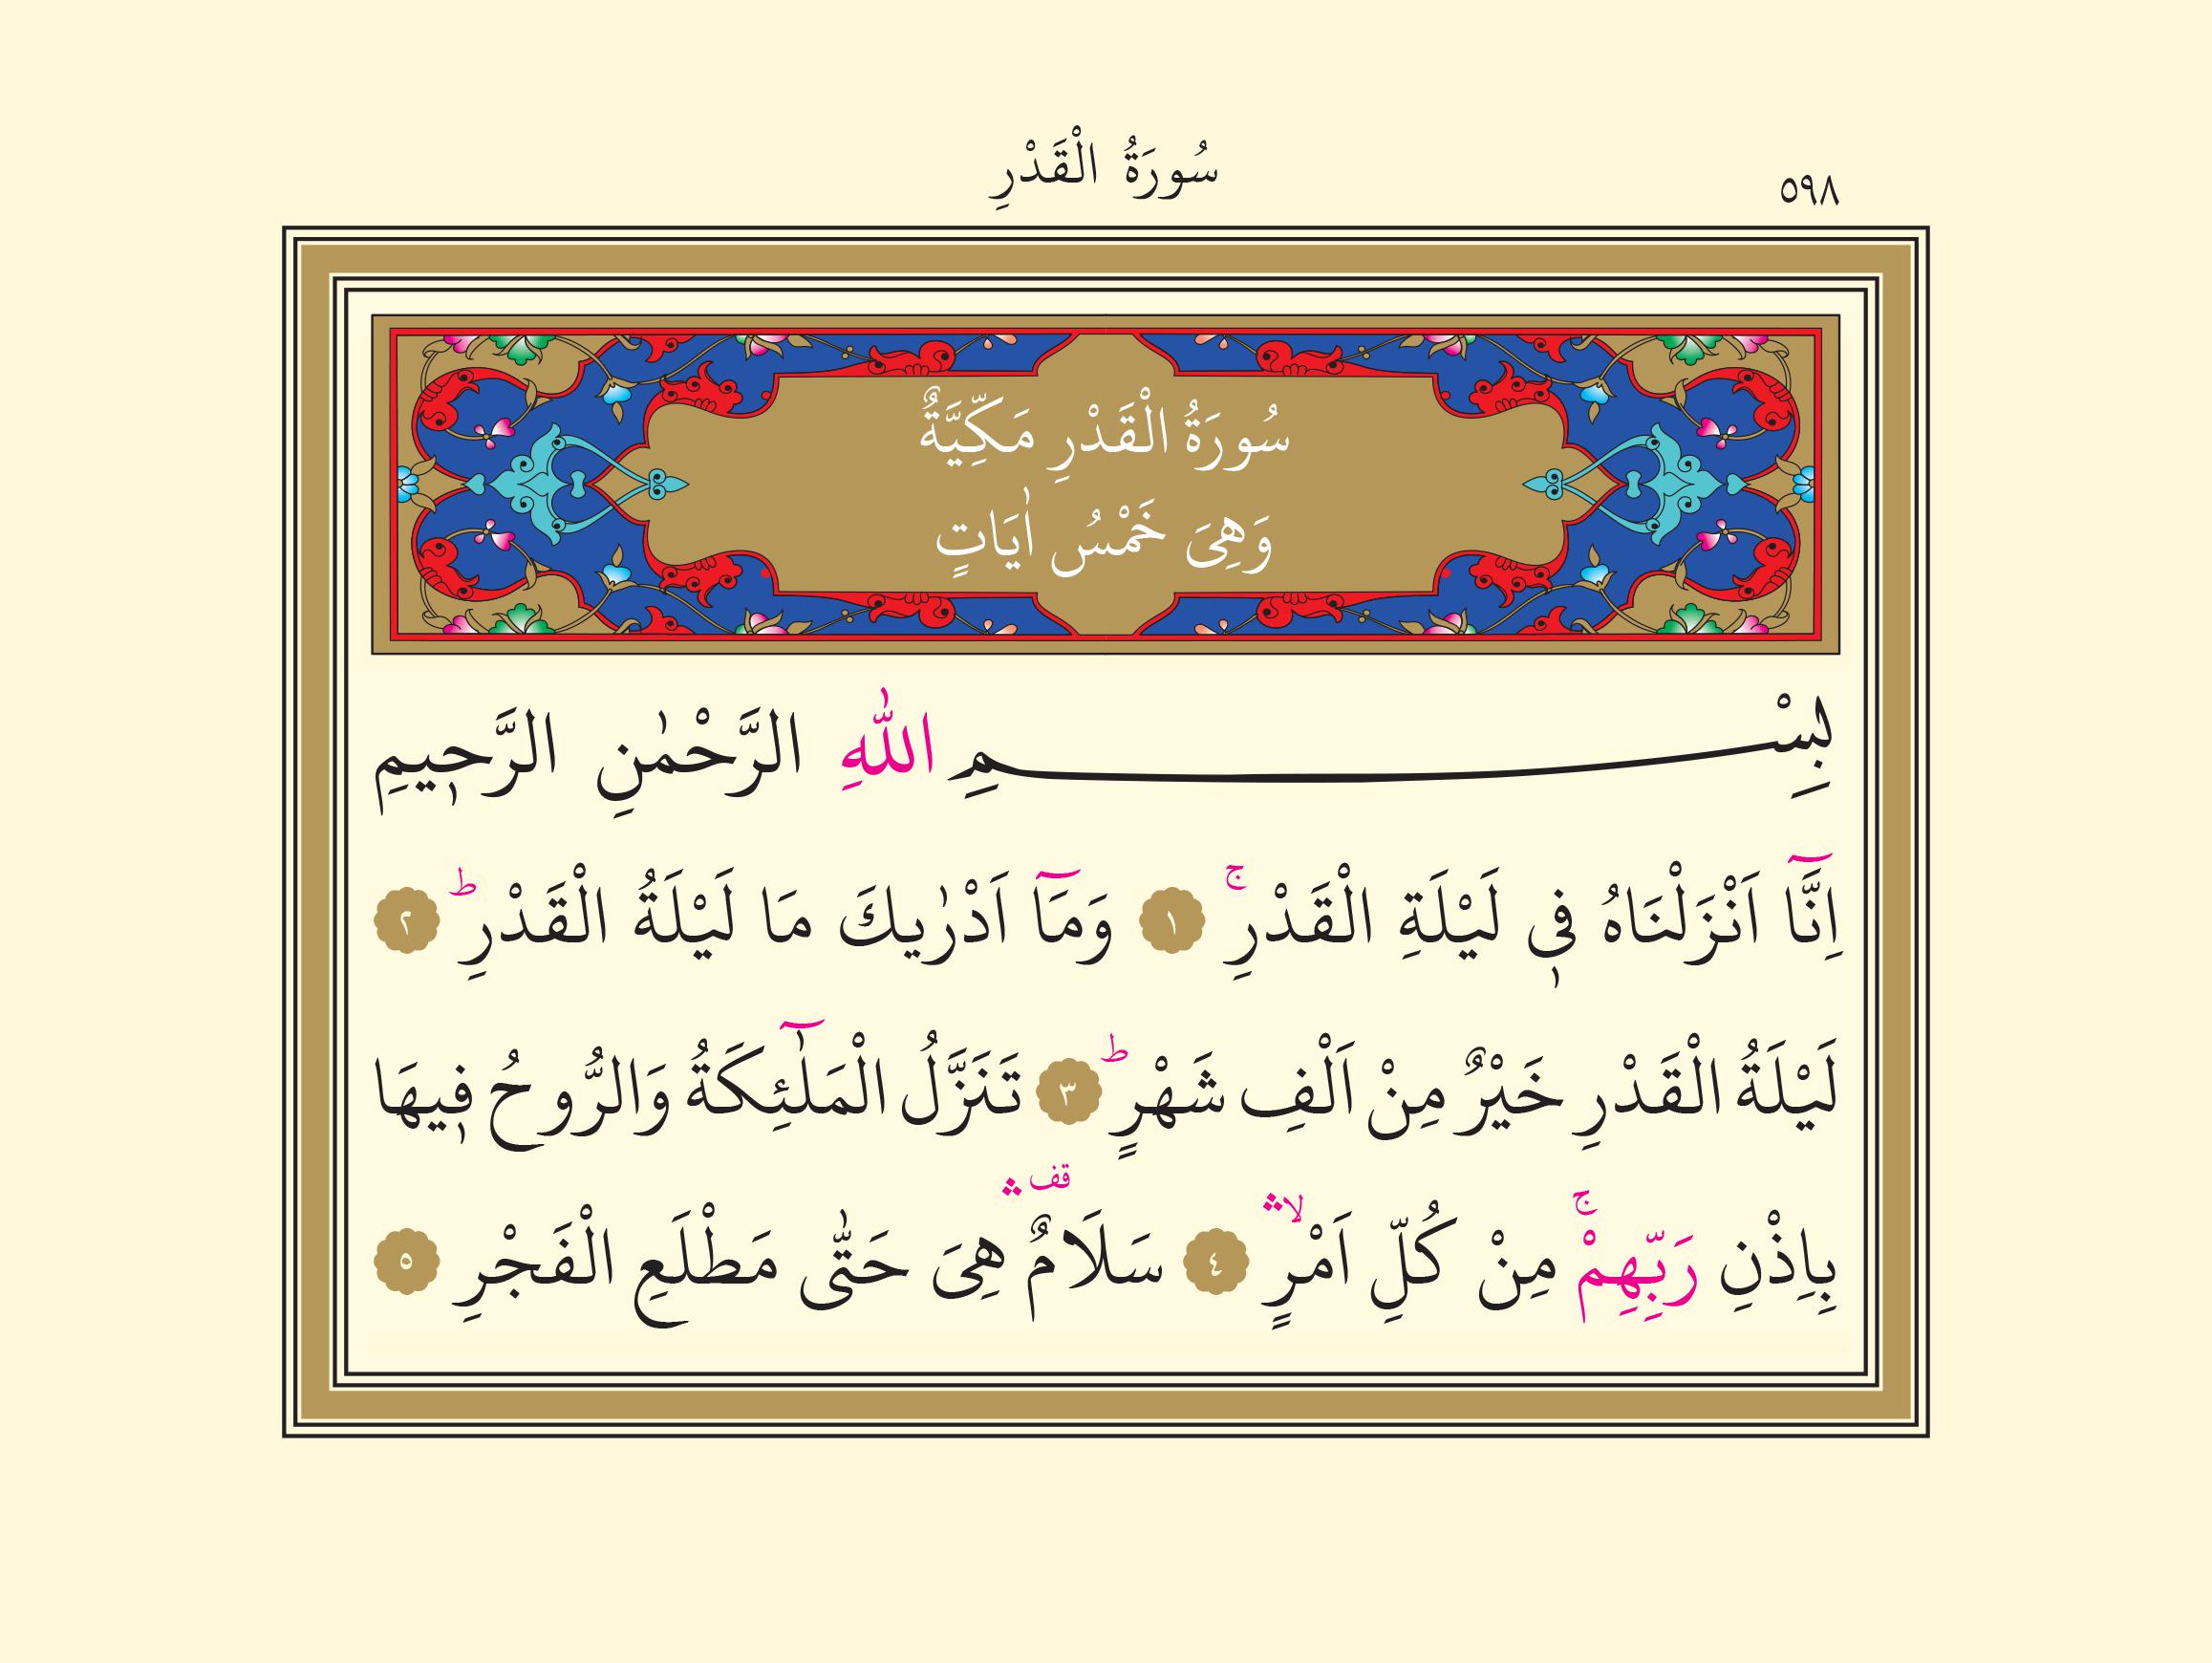 ٥٩٨
سُورَةُ الْقَدْرِ
سُورَةُ الْقَدْرِ مَكِّيَّةٌ
وَهِىَ خَمْسُ اٰيَاتٍ
بِسْمِ اللّٰهِ الرَّحْمٰنِ الرَّح۪يمِ
اِنَّٓا اَنْزَلْنَاهُ ف۪ى لَيْلَةِ الْقَدْرِۚ ١ وَمَٓا اَدْرٰيكَ مَا لَيْلَةُ الْقَدْرِۜ ٢
لَيْلَةُ الْقَدْرِ خَيْرٌ مِنْ اَلْفِ شَهْرٍۜ ٣ تَنَزَّلُ الْمَلٰٓئِكَةُ وَالرُّوحُ ف۪يهَا
بِاِذْنِ رَبِّهِمْۚ مِنْ كُلِّ اَمْرٍۙۛ ٤ سَلَامٌ۠ۛ هِىَ حَتّٰى مَطْلَعِ الْفَجْرِ ٥